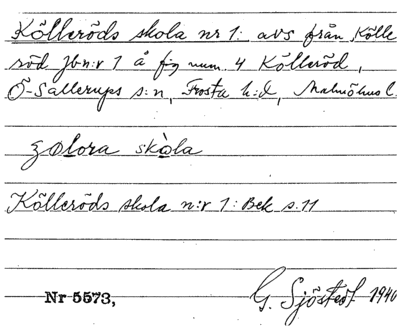 Kölleröds skola nr 1: avs från Kölle
röd Jbn:r 1 å fig num. 4 Kölleröd,
Ö-Sallerups s:n, Frosta h:d, Malmöhus l.
skola
Kölleröds skola n:r 1: Bek s. 11
Nr 5573, G. Sjöstedt 1940